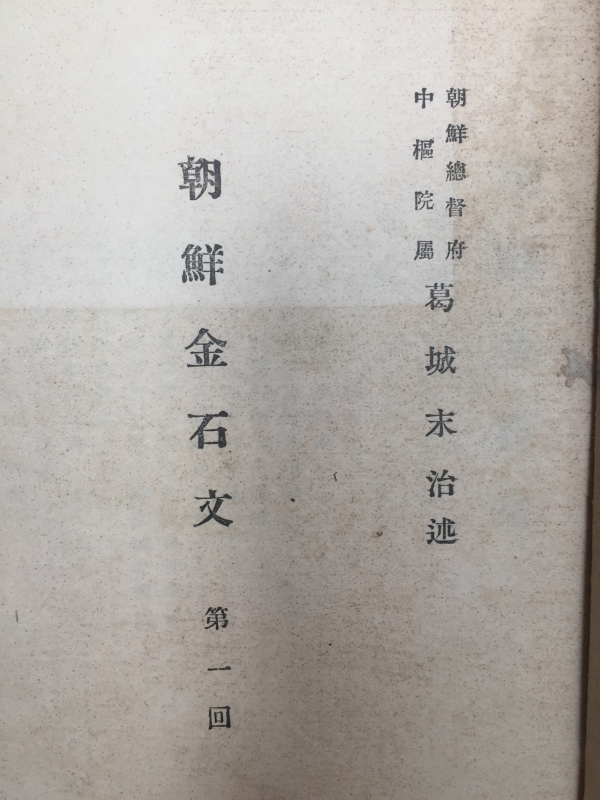 朝鮮總督府
中樞院屬
葛城末治述
朝鮮金石文 第一回